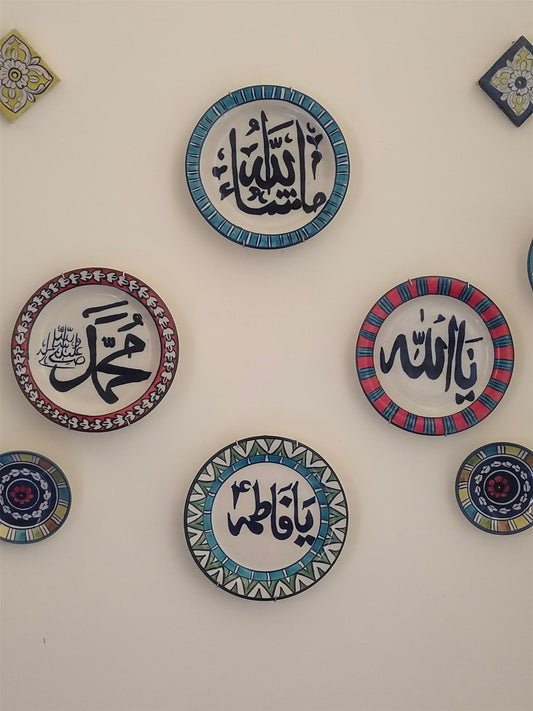 ماشاءالله
يا الله
محمد
صلى الله عليه وسلم
يا فاطمه ؑ